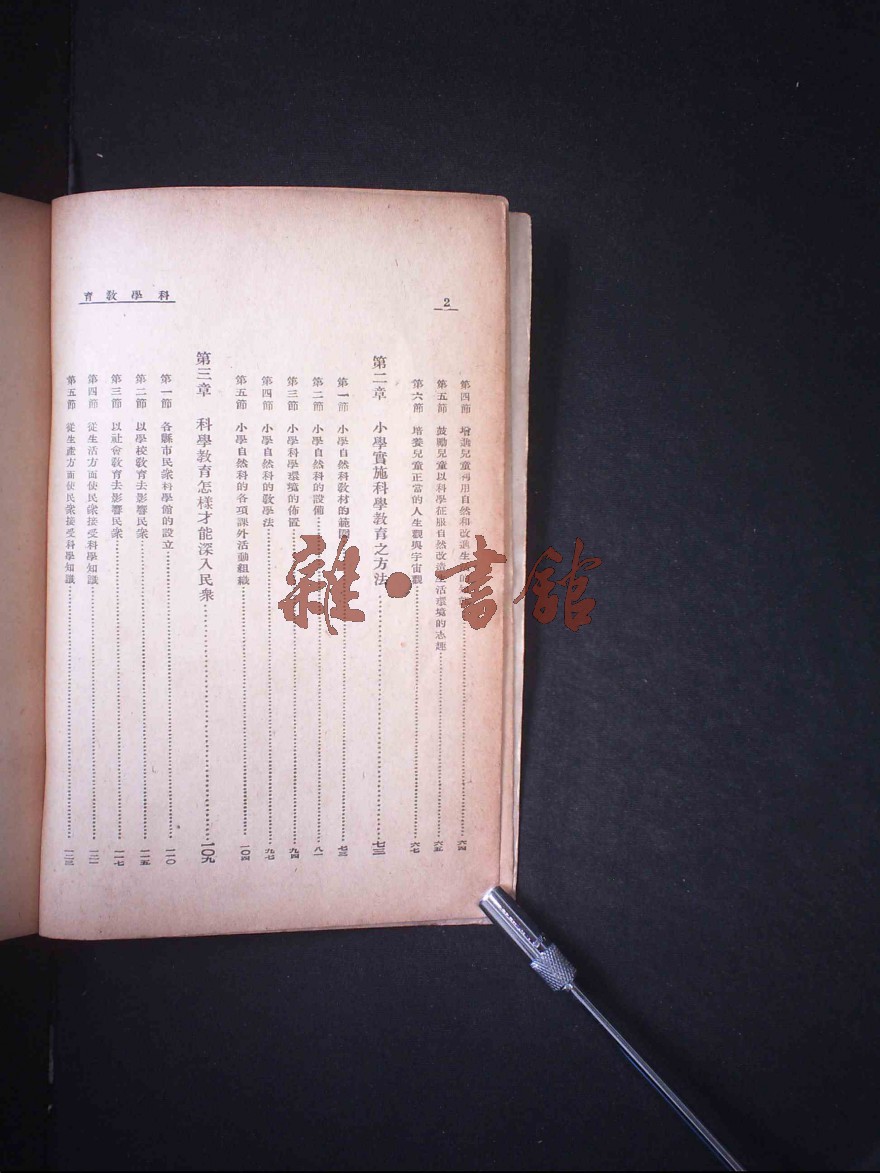 科學教育
2
第四節 增進兒童利用自然和改進生活的
第五節 鼓勵兒童以科學征服自然改造生活環境的志趣 六五
第六節 培養兒童正當的人生觀與宇宙觀 六七
第二章 小學實施科學教育之方法 七三
第一節 小學自然科教材的範圍 七三
第二節 小學自然科的設備 八一
第三節 小學科學環境的佈置 九四
第四節 小學自然科的教學法 九七
第五節 小學自然科的各項課外活動組織 一〇四
第三章 科學教育怎樣才能深入民衆 一〇九
第一節 各縣市民衆科學館的設立 一一〇
第二節 以學校教育去影響民衆 一一五
第三節 以社會教育去影響民衆 一一七
第四節 從生活方面使民衆接受科學知識
第五節 從生產方面使民衆接受科學知識 一二三
雜·書館